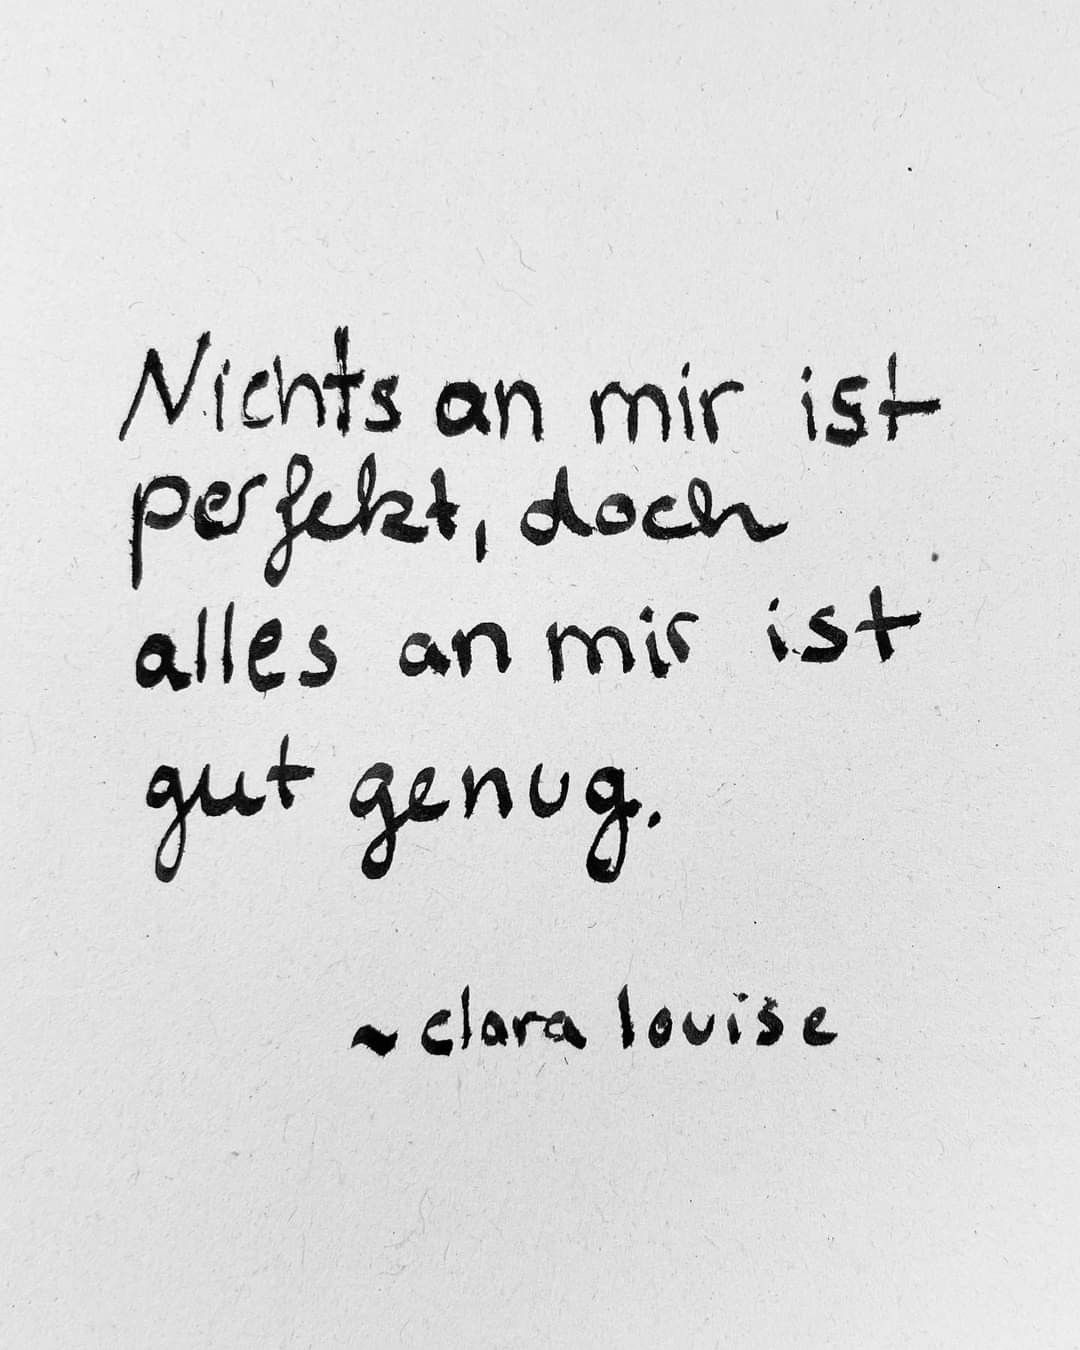 Nichts an mir ist
perfekt, doch
alles an mir ist
gut genug.
~ clara louise